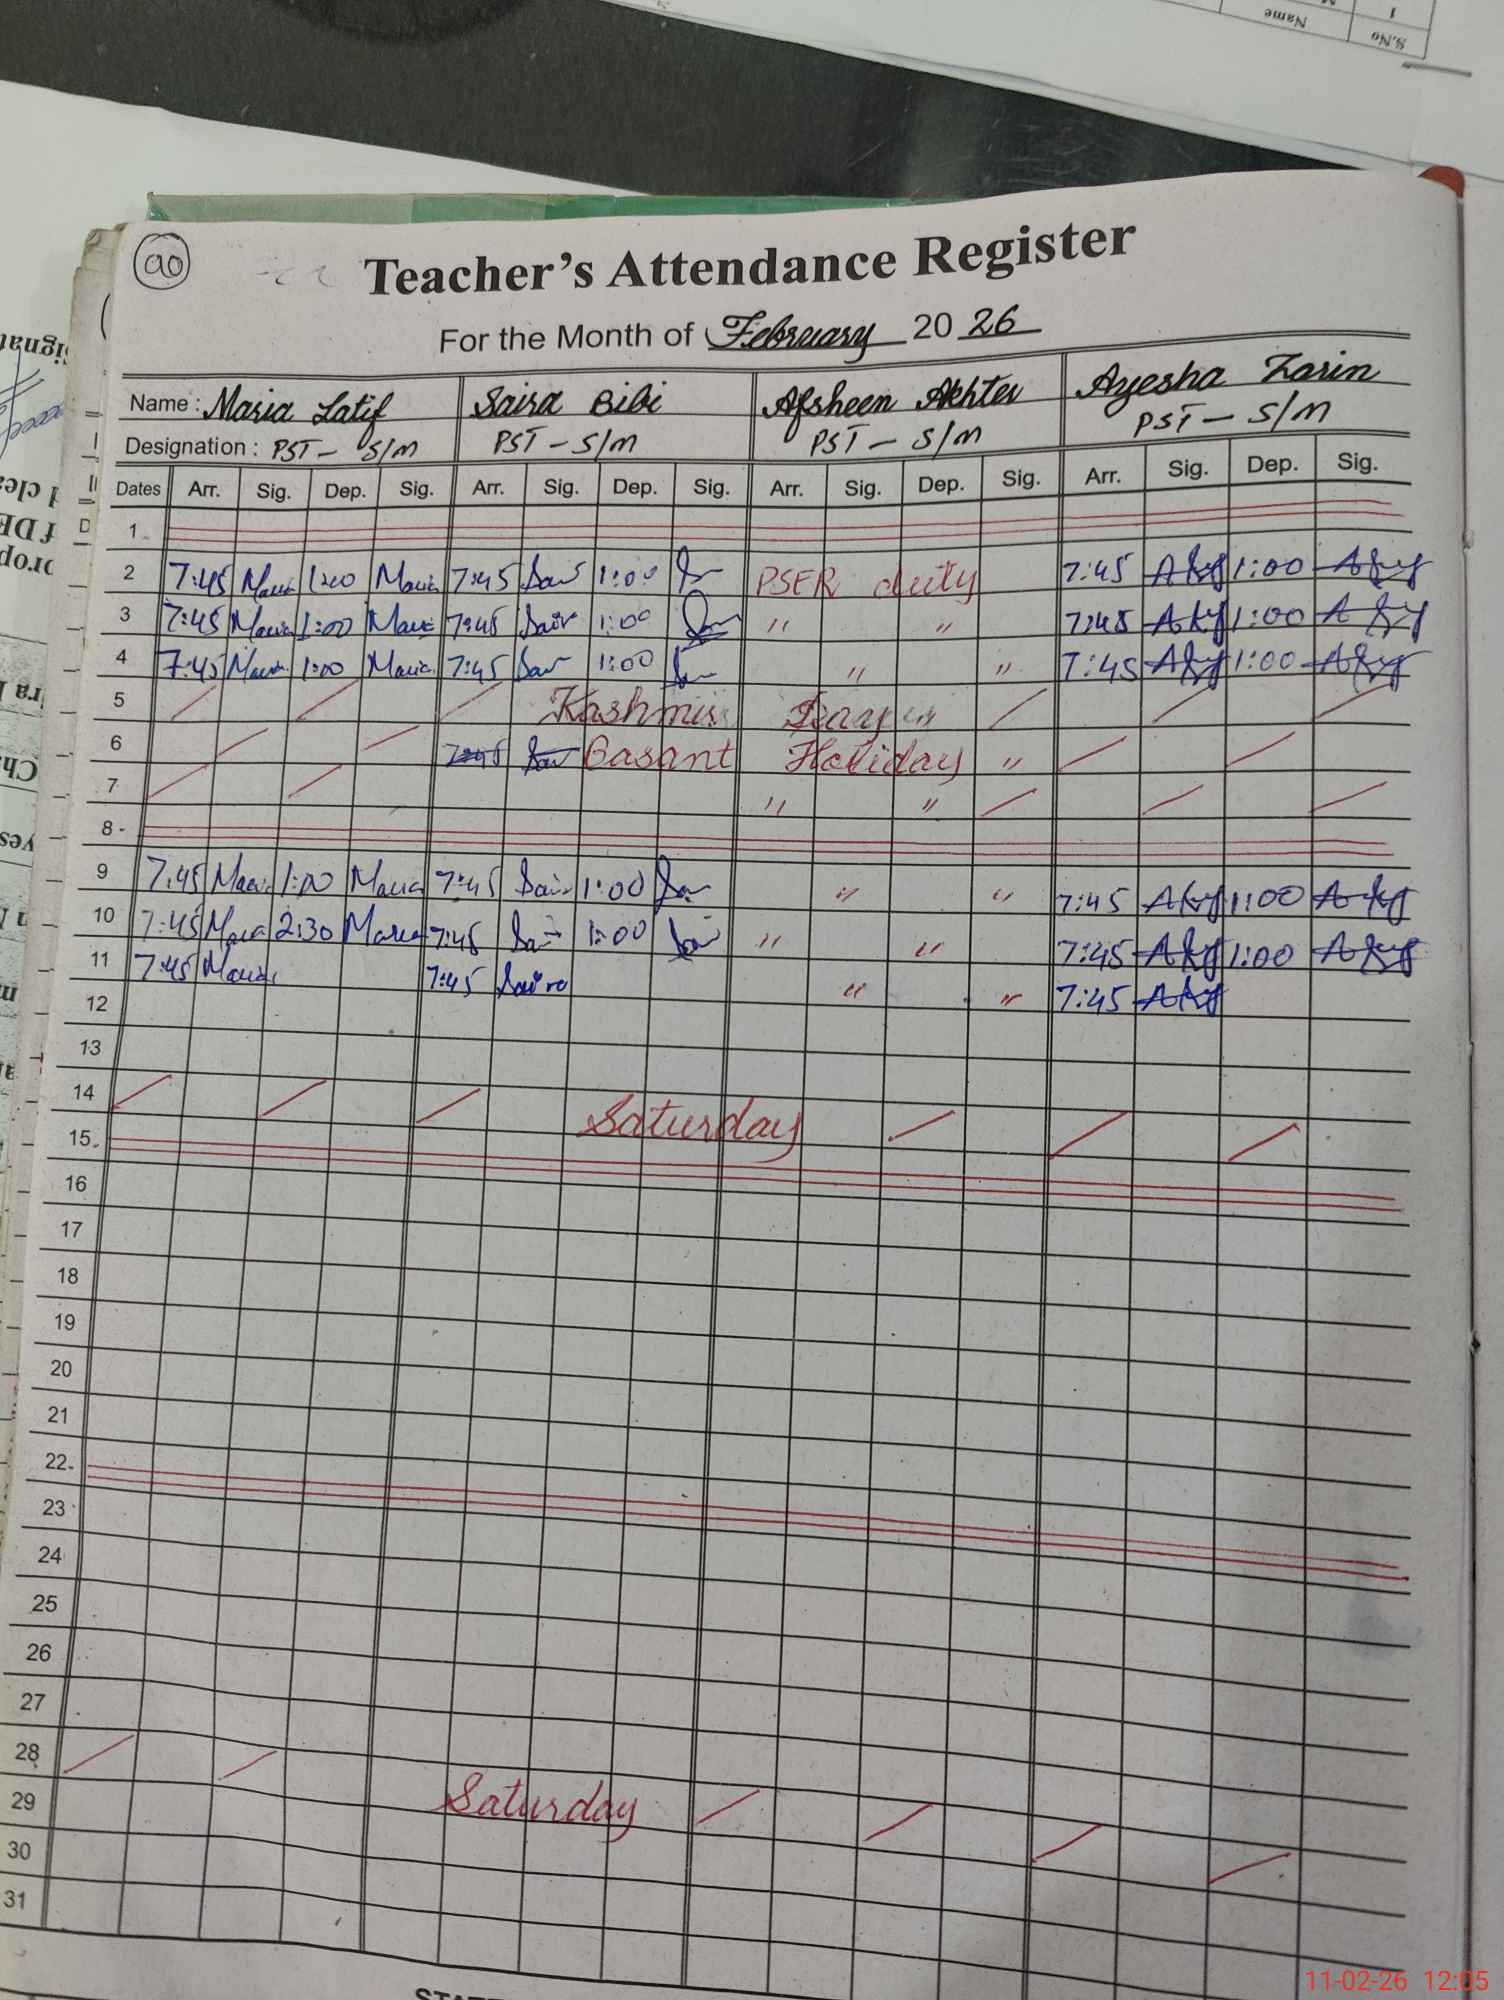 S.No
Name
1
90
Teacher's Attendance Register
For the Month of February 2026
Name : Maria Latif Saira Bibi Afsheen Akhter Ayesha Zarin
Designation : PST - S/M PST - S/M PST - S/M PST - S/M
Dates Arr. Sig. Dep. Sig. Arr. Sig. Dep. Sig. Arr. Sig. Dep. Sig. Arr. Sig. Dep. Sig.
1
2 7:45 Maria 1:00 Maria 7:45 1:00 PSER duty 7:45 1:00
3 7:45 Maria 1:00 Maria 7:45 1:00 " " 7:45 1:00
4 7:45 Maria 1:00 Maria 7:45 1:00 " " 7:45 1:00
5 Kashmir
6 7:45 Basant Holiday "
7 " "
8
9 7:45 Maria 1:00 Maria 7:45 1:00 " " 7:45 1:00
10 7:45 Maria 2:30 Maria 7:45 1:00 " " 7:45 1:00
11 7:45 Maria 7:45 Saira " " 7:45
12
13
14 Saturday
15
16
17
18
19
20
21
22
23
24
25
26
27
28 Saturday
29
30
31
11-02-26 12:05